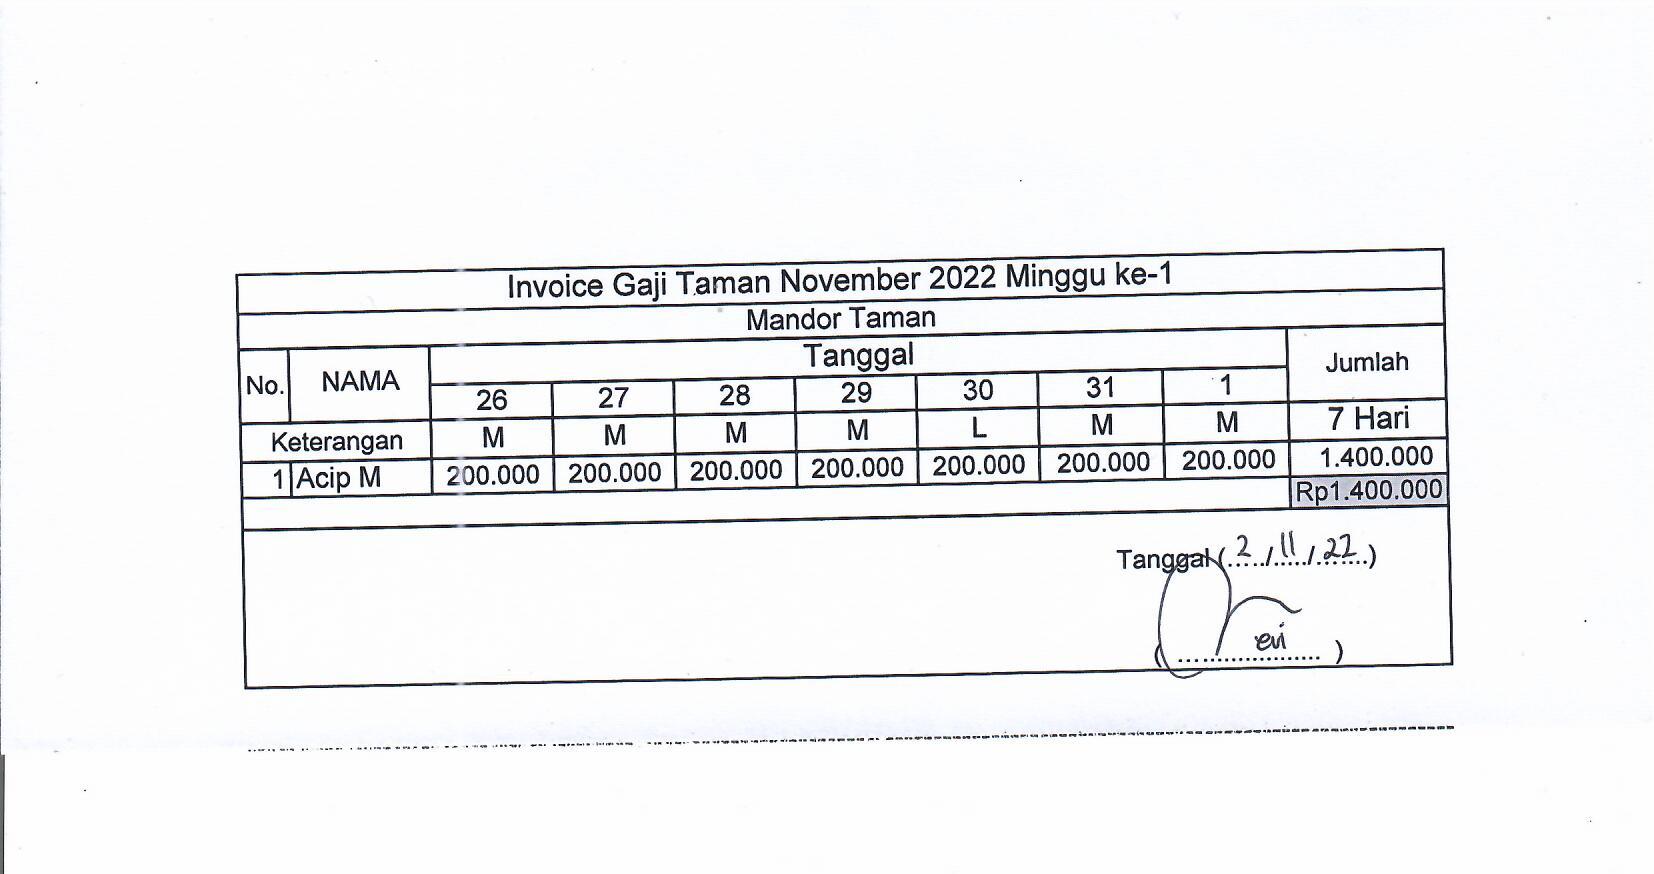 Invoice Gaji Taman November 2022 Minggu ke-1
Mandor Taman
No. NAMA Tanggal Jumlah
26 27 28 29 30 31 1
Keterangan M M M M L M M 7 Hari
1 Acip M 200.000 200.000 200.000 200.000 200.000 200.000 200.000 1.400.000
Rp1.400.000
Tanggal (2/11/22)
( )